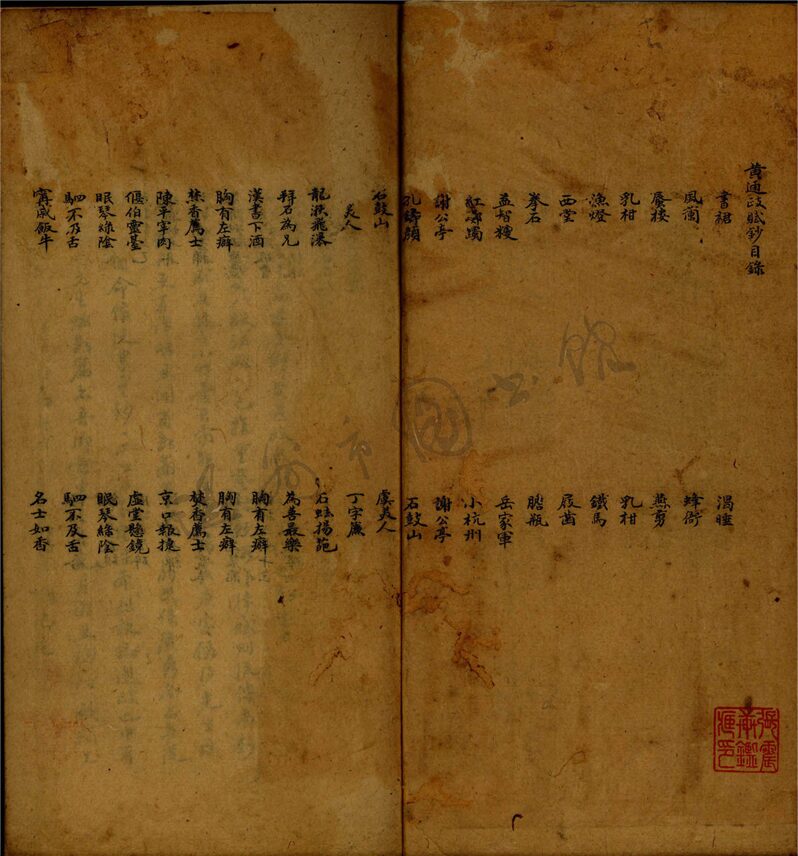 黄通政賦鈔目錄
書裙　渴睡
風蘭　蜂衙
蜃樓　燕剪
乳柑　乳柑
漁燈　鐵馬
西堂　屐齒
拳石　膽瓶
益智粽　岳家軍
紅躑躅　小杭州
謝公亭　謝公亭
孔鑄顏　石鼓山
石鼓山　虞美人
美人　丁字簾
龍湫瀑　石蚨揚葩
拜石為兄　為善最樂
漢書下酒　胸有左癖
胸有左癖　胸有左癖
焚香薦士　焚香薦士
陳平宰肉　京口報捷
偃伯靈臺　虛堂懸鏡
眠琴綠陰　眠琴綠陰
駟不及舌　駟不及舌
甯戚飯牛　名士如香